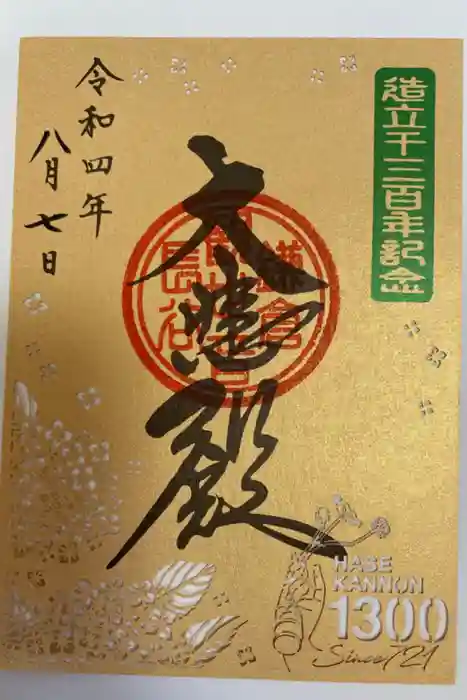 造立千三百年記念
大悲殿
鎌倉
長谷
令和四年
八月七日
HASE
KANNON
1300
Since 721